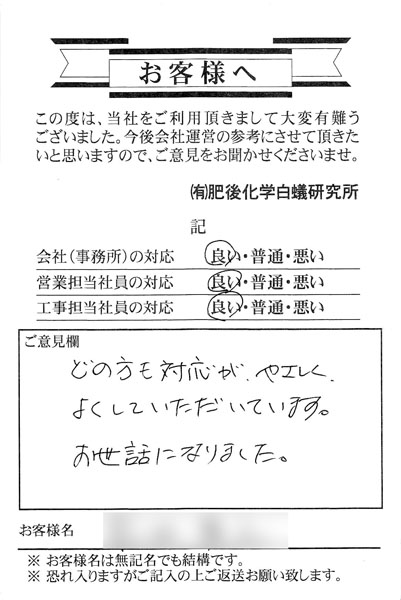 お客様へ
この度は、当社をご利用頂きまして大変有難う
ございました。今後会社運営の参考にさせて頂きた
いと思いますので、ご意見をお聞かせくださいませ。
㈲肥後化学白蟻研究所
記
会社（事務所）の対応 良い・普通・悪い
営業担当社員の対応 良い・普通・悪い
工事担当社員の対応 良い・普通・悪い
ご意見欄
どの方も対応が、やさしく、
よくしていただいています。
お世話になりました。
お客様名
※ お客様名は無記名でも結構です。
※ 恐れ入りますがご記入の上ご返送お願い致します。